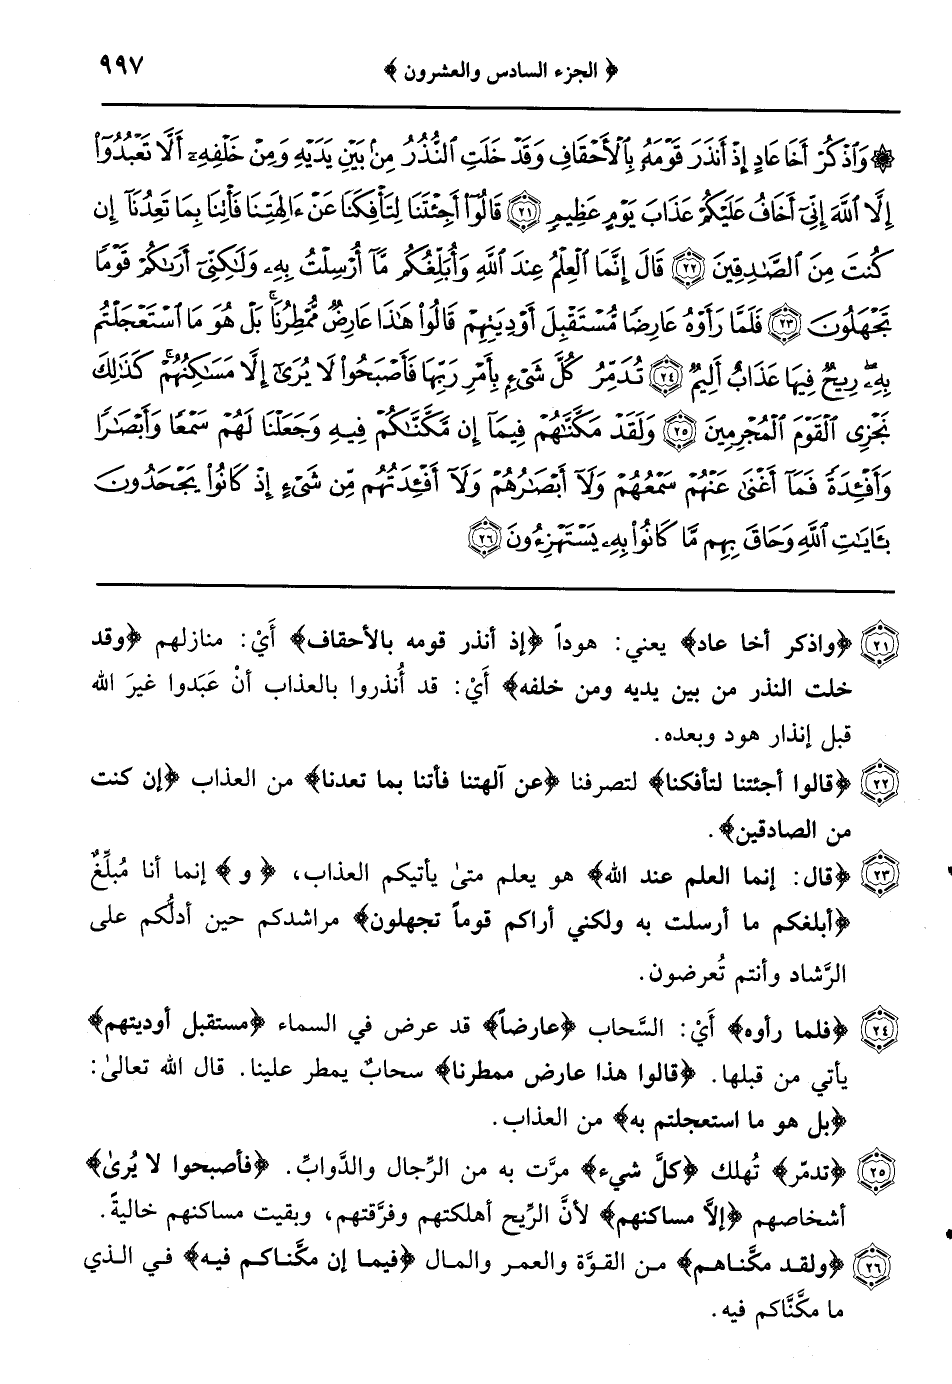 ﴿ الجزء السادس والعشرون ﴾ ٩٩٧
۞ وَٱذۡكُرۡ أَخَا عَادٍ إِذۡ أَنذَرَ قَوۡمَهُۥ بِٱلۡأَحۡقَافِ وَقَدۡ خَلَتِ ٱلنُّذُرُ مِنۢ بَيۡنِ يَدَيۡهِ وَمِنۡ خَلۡفِهِۦٓ أَلَّا تَعۡبُدُوٓاْ
إِلَّا ٱللَّهَ إِنِّيٓ أَخَافُ عَلَيۡكُمۡ عَذَابَ يَوۡمٍ عَظِيمٖ ٢١ قَالُوٓاْ أَجِئۡتَنَا لِتَأۡفِكَنَا عَنۡ ءَالِهَتِنَا فَأۡتِنَا بِمَا تَعِدُنَآ إِن
كُنتَ مِنَ ٱلصَّٰدِقِينَ ٢٢ قَالَ إِنَّمَا ٱلۡعِلۡمُ عِندَ ٱللَّهِ وَأُبَلِّغُكُم مَّآ أُرۡسِلۡتُ بِهِۦ وَلَٰكِنِّيٓ أَرَىٰكُمۡ قَوۡمٗا
تَجۡهَلُونَ ٢٣ فَلَمَّا رَأَوۡهُ عَارِضٗا مُّسۡتَقۡبِلَ أَوۡدِيَتِهِمۡ قَالُواْ هَٰذَا عَارِضٞ مُّمۡطِرُنَاۚ بَلۡ هُوَ مَا ٱسۡتَعۡجَلۡتُم
بِهِۦۖ رِيحٞ فِيهَا عَذَابٌ أَلِيمٞ ٢٤ تُدَمِّرُ كُلَّ شَيۡءِۭ بِأَمۡرِ رَبِّهَا فَأَصۡبَحُواْ لَا يُرَىٰٓ إِلَّا مَسَٰكِنُهُمۡۚ كَذَٰلِكَ
نَجۡزِي ٱلۡقَوۡمَ ٱلۡمُجۡرِمِينَ ٢٥ وَلَقَدۡ مَكَّنَّٰهُمۡ فِيمَآ إِن مَّكَّنَّٰكُمۡ فِيهِ وَجَعَلۡنَا لَهُمۡ سَمۡعٗا وَأَبۡصَٰرٗا
وَأَفۡـِٔدَةٗ فَمَآ أَغۡنَىٰ عَنۡهُمۡ سَمۡعُهُمۡ وَلَآ أَبۡصَٰرُهُمۡ وَلَآ أَفۡـِٔدَتُهُم مِّن شَيۡءٍ إِذۡ كَانُواْ يَجۡحَدُونَ
بِـَٔايَٰتِ ٱللَّهِ وَحَاقَ بِهِم مَّا كَانُواْ بِهِۦ يَسۡتَهۡزِءُونَ ٢٦
٢١ ﴿واذكر أخا عاد﴾ يعني: هوداً ﴿إذ أنذر قومه بالأحقاف﴾ أَيْ: منازلهم ﴿وقد
خلت النذر من بين يديه ومن خلفه﴾ أَيْ: قد أُنذروا بالعذاب أنْ عَبَدوا غيرَ الله
قبل إنذار هود وبعده.
٢٢ ﴿قالوا أجئتنا لتأفكنا﴾ لتصرفنا ﴿عن آلهتنا فأتنا بما تعدنا﴾ من العذاب ﴿إن كنت
من الصادقين﴾.
٢٣ ﴿قال: إنما العلم عند الله﴾ هو يعلم متىٰ يأتيكم العذاب، ﴿و﴾ إنما أنا مُبلِّغٌ
﴿أبلغكم ما أرسلت به ولكني أراكم قوماً تجهلون﴾ مراشدكم حين أدلُّكم على
الرَّشاد وأنتم تُعرضون.
٢٤ ﴿فلما رأوه﴾ أَيْ: السَّحاب ﴿عارضاً﴾ قد عرض في السماء ﴿مستقبل أوديتهم﴾
يأتي من قبلها. ﴿قالوا هذا عارض ممطرنا﴾ سحابٌ يمطر علينا. قال الله تعالىٰ:
﴿بل هو ما استعجلتم به﴾ من العذاب.
٢٥ ﴿تدمّر﴾ تُهلك ﴿كلَّ شيء﴾ مرَّت به من الرِّجال والدَّوابِّ. ﴿فأصبحوا لا يُرىٰ﴾
أشخاصهم ﴿إلاَّ مساكنهم﴾ لأنَّ الرِّيح أهلكتهم وفرَّقتهم، وبقيت مساكنهم خاليةً.
٢٦ ﴿ولقد مكَّناهم﴾ من القوَّة والعمر والمال ﴿فيما إن مكَّناكم فيه﴾ في الذي
ما مكَّنَّاكم فيه.